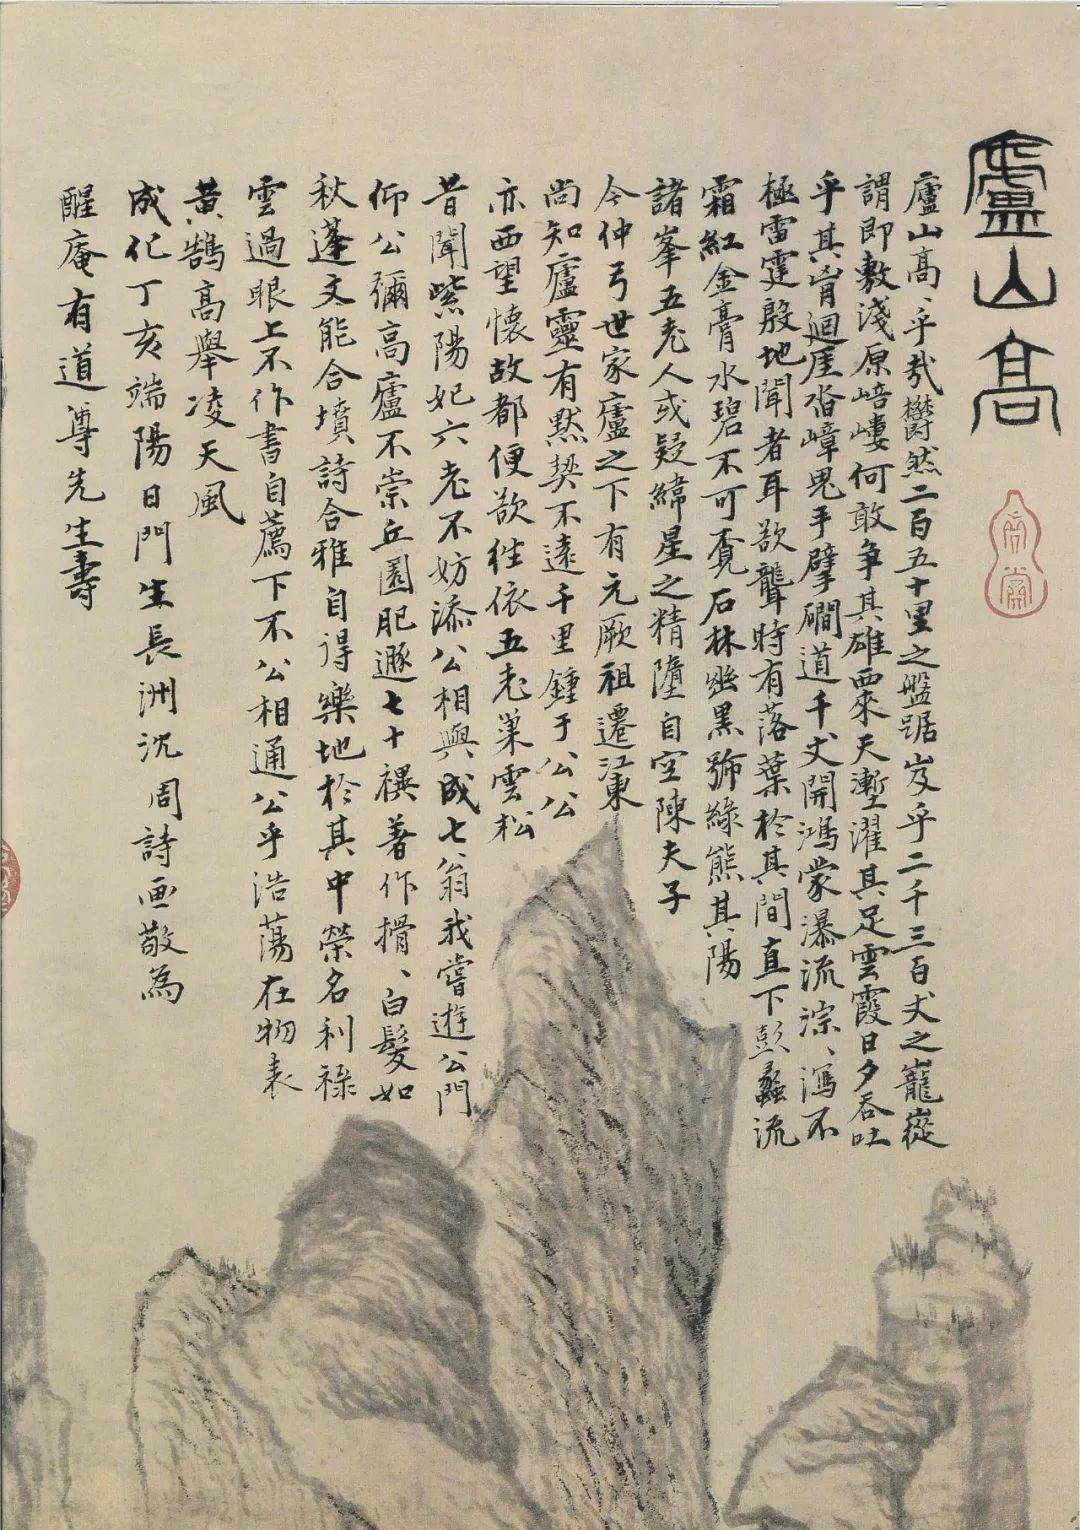 廬山高
廬山高、乎哉欝然二百五十里之盤踞岌乎二千三百丈之巃嵸
謂即敷淺原㟝嶁何敢爭其雄西來天塹濯其足雲霞日夕吞吐
乎其胷迴厓沓嶂鬼手擘磵道千丈開鴻蒙瀑流淙、瀉不
極雷霆殷地聞者耳欲聾時有落葉於其間直下彭蠡流
霜紅金膏水碧不可覔石林幽黑號綠熊其陽
諸峯五老人或疑緯星之精墮自空陳夫子
今仲弓世家廬之下有元厥祖遷江東
尚知廬靈有默契不遠千里鍾于公公
亦西望懷故都便欲往依五老巢雲松
昔聞紫陽妃六老不妨添公相與成七翁我嘗遊公門
仰公彌高廬不崇丘園肥遯七十禩著作搰、白髮如
秋蓬文能合墳詩合雅自得樂地於其中榮名利祿
雲過眼上不作書自薦下不公相通公乎浩蕩在物表
黃鵠高舉凌天風
成化丁亥端陽日門生長洲沈周詩画敬為
醒庵有道尊先生壽